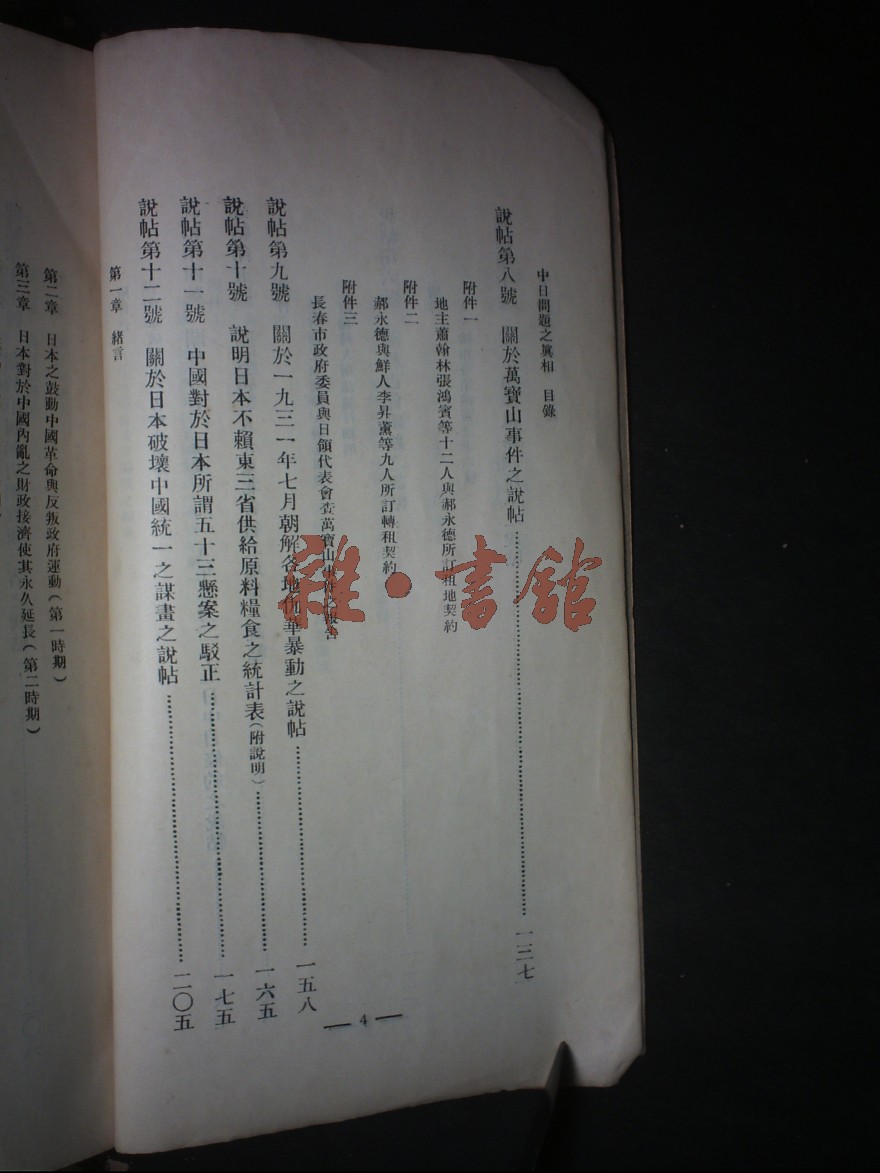 中日問題之眞相　目錄
說帖第八號　關於萬寶山事件之說帖…………一二七
附件一
地主蕭翰林張鴻賓等十二人與郝永德所訂租地契約
附件二
郝永德與鮮人李昇薰等九人所訂轉租契約
附件三
長春市政府委員與日領代表會查萬寶山事件之報告
說帖第九號　關於一九三一年七月朝解各地仇華暴動之說帖…………一五八
說帖第十號　說明日本不賴東三省供給原料糧食之統計表(附說明)…………一六五
說帖第十一號　中國對於日本所謂五十三懸案之駁正…………一七五
說帖第十二號　關於日本破壞中國統一之謀畫之說帖…………二〇五
第一章　緒言
— 4 —
第二章　日本之鼓動中國革命與反叛政府運動(第一時期)
第三章　日本對於中國內亂之財政接濟使其永久延長(第二時期)
雜·書館